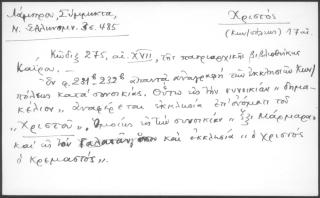 Λάμπρου, Σύμμικτα,
Ν. Ἑλληνομν. 3 σ. 485
Χριστός
(Κων/πόλεως) 17 αἰ.
Κῶδιξ 275, αἰ. XVII, τῆς πατριαρχικῆς βιβλιοθήκης
Καΐρου. —
Ἐν φ. 231β 232α ἀπαντᾷ ἀναγραφὴ τῶν ἐκκλησιῶν Κων/
πόλεως κατὰ συνοικίας. Οὕτω εἰς τὴν συνοικίαν
κέλιον" ἀναφέρεται ἐκκλησία ἐπ' ὀνόματι τοῦ
„Χριστοῦ", ὁμοίως εἰς τὴν συνοικίαν „Ἓξ Μάρμαρα"
καὶ εἰς τὸν Γαλατᾶν καὶ ἐκκλησία „ὁ Χριστὸς
ὁ Κρεμαστός".